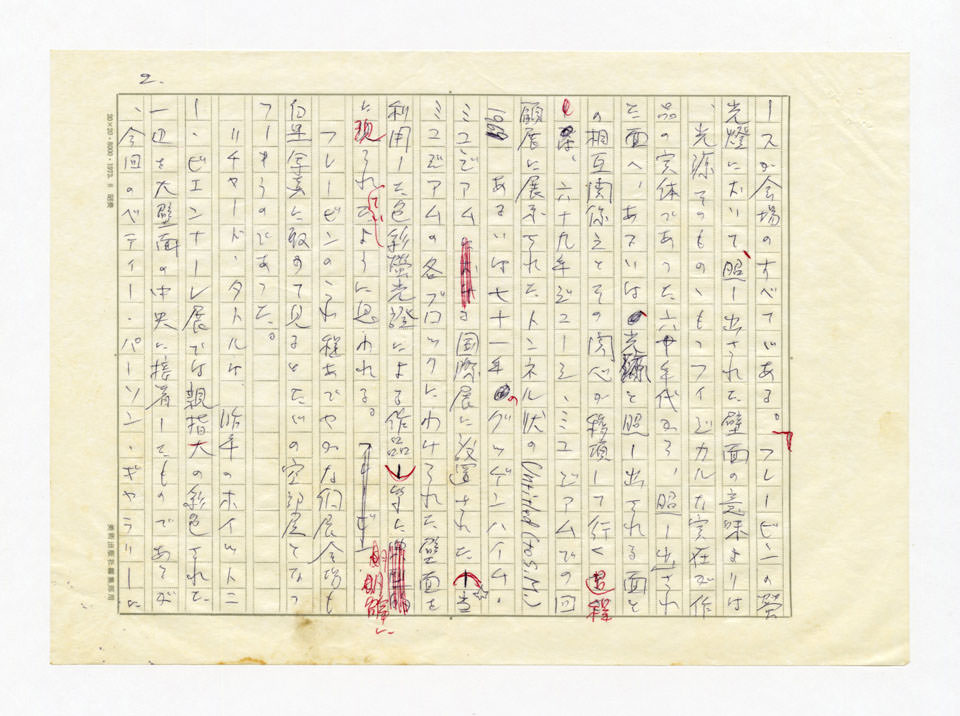 2.
ースが会場のすべてである。フレービンの螢
光燈において、照し出された壁面の意味よりは
、光源そのもののもつフィジカルな実在が作
品の実体であった六十年代から、照し出され
た面へ、あるいは光源と照し出される面と
の相互関係えとその関心が移項して行く過程
は、六十九年ジューイシ・ミュジアムでの回
顧展に展示されたトンネル状の(Untitled (to S.M.)
1969 あるいは七十一年のグッゲンハイム・
ミュジアム 国際展に設置された、当
ミュジアムの各ブロックにわけられた壁面を
利用した色彩螢光燈による作品に
に現われているように思われる。
明瞭に
フレービンのこれ程あでやかな個展会場も
白黒写真に取って見るとただの空部屋となっ
てしまうのであった。
リチャード・タトルは、昨年のホイットニ
ー・ビエンナーレ展では親指大の彩色された
一辺を大壁面の中央に接着したものであるが
、今回のベティー・パーソン・ギャラリーに
20×20・8000・1973. 8 昭京
美術出版社編集部用